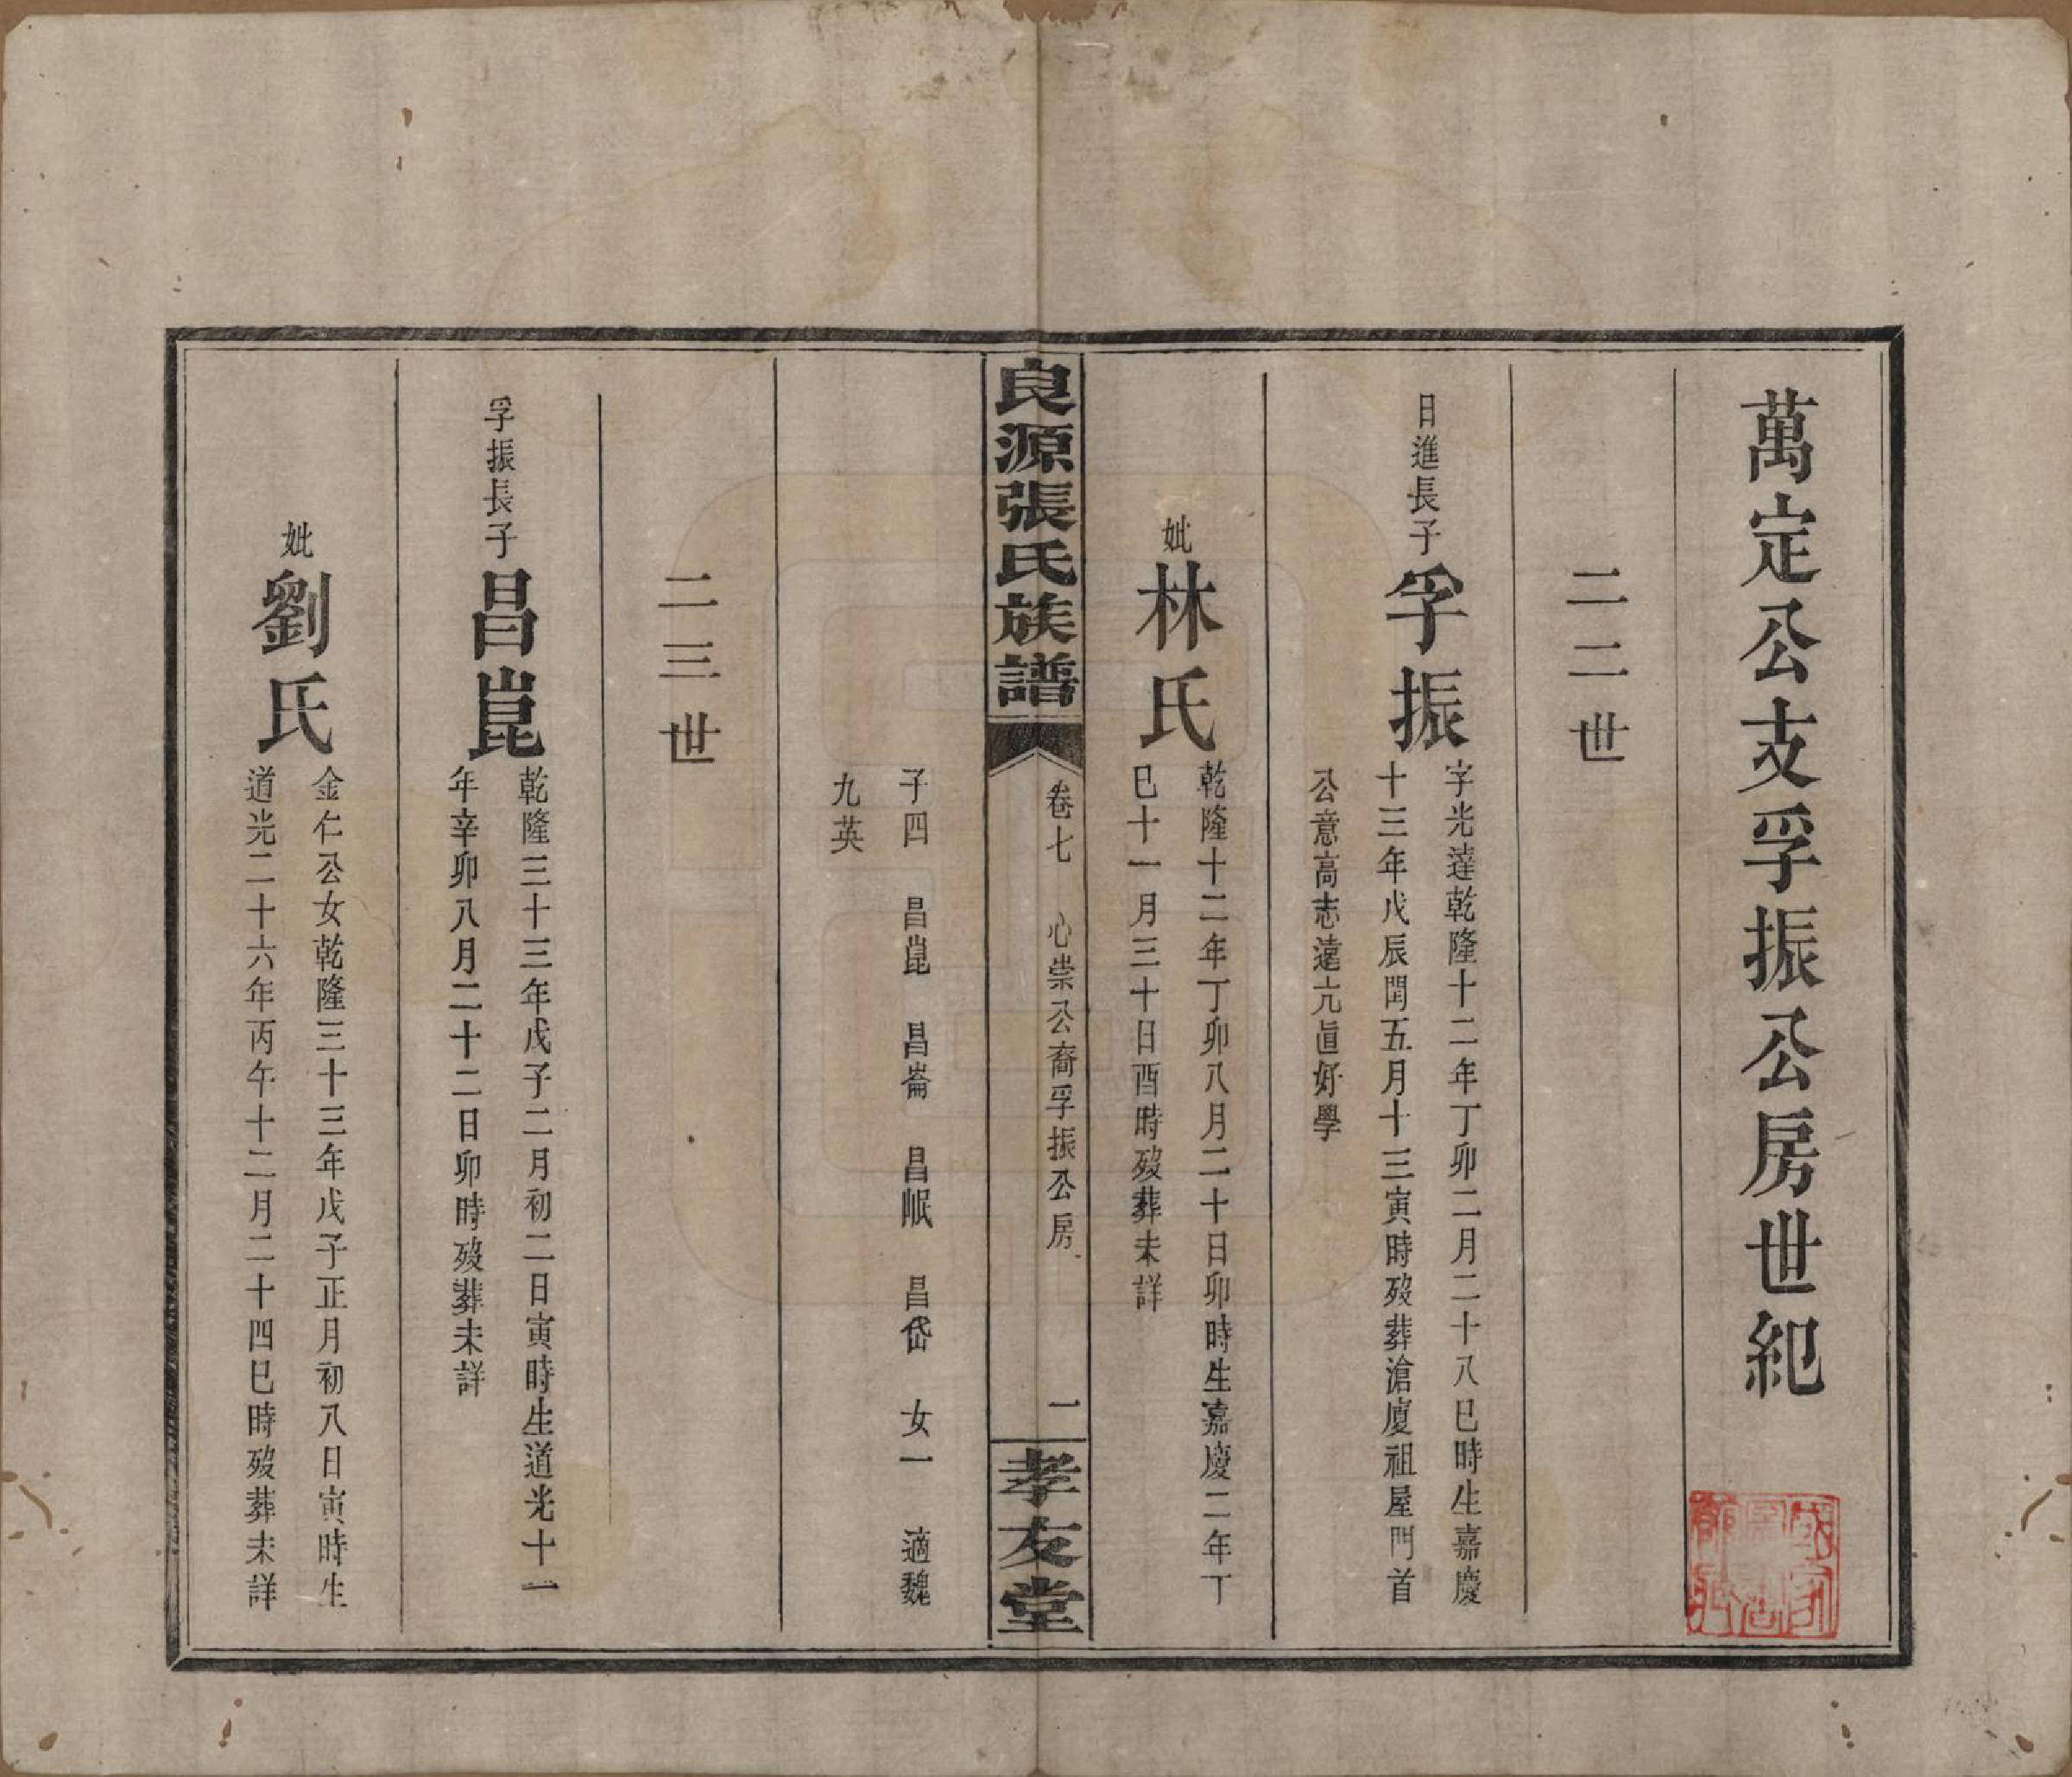 萬定公支孚振公房世紀
二二世
日進長子
孚振
字光達乾隆十二年丁卯二月二十八巳時生嘉慶
十三年戊辰閏五月十三寅時歿葬滄廈祖屋門首
公意高志遠亢直好學
妣
林氏
乾隆十二年丁卯八月二十日卯時生嘉慶二年丁
巳十一月三十日酉時歿葬未詳
良源張氏族譜
卷七 心崇公裔孚振公房
一
孝友堂
子四 昌崑 昌崙 昌岷 昌岱 女一 適魏
九英
二三世
孚振長子
昌崑
乾隆三十三年戊子二月初二日寅時生道光十一
年辛卯八月二十二日卯時歿葬未詳
妣
劉氏
金仁公女乾隆三十三年戊子正月初八日寅時生
道光二十六年丙午十二月二十四巳時歿葬未詳